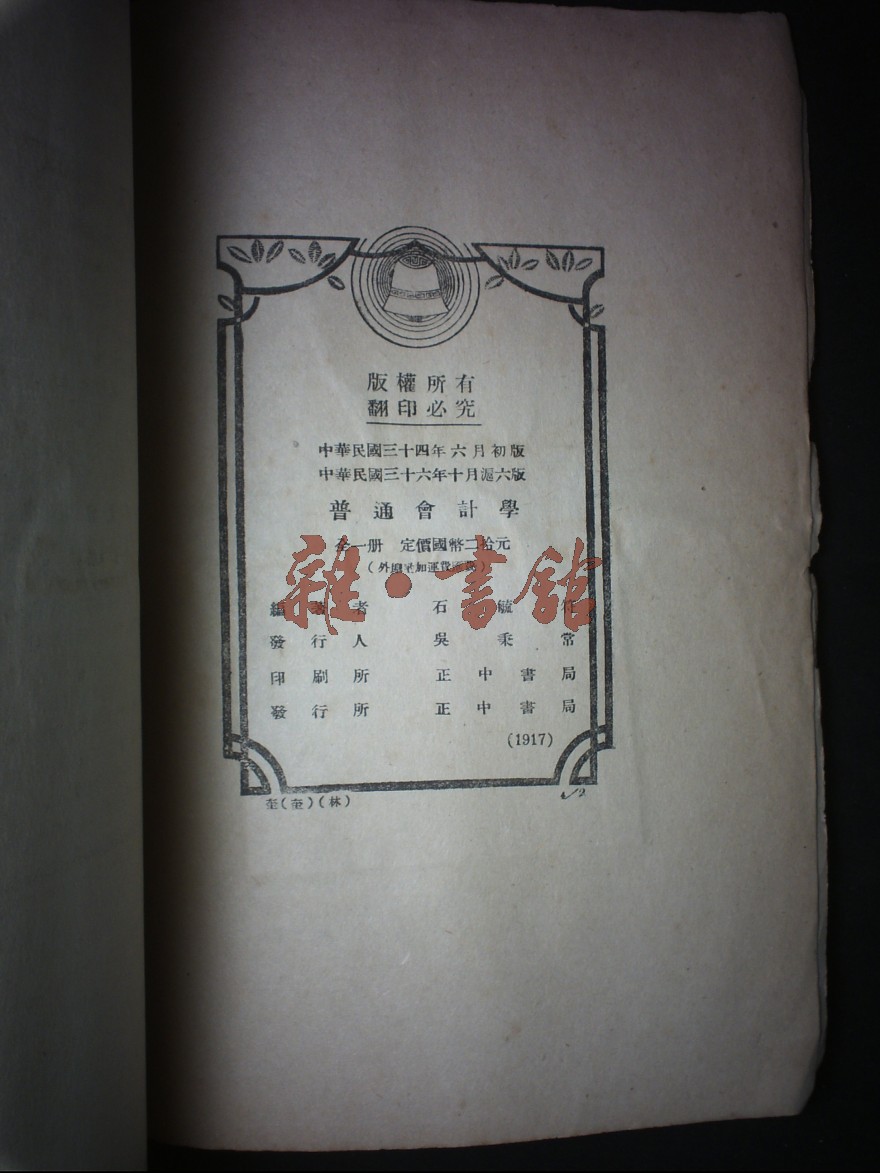 版權所有
翻印必究
中華民國三十四年六月初版
中華民國三十六年十月滬六版
普通會計學
全一册 定價國幣二拾元
(外埠酌加運費滙費)
雜·書館
編著者 石毓符
發行人 吳秉常
印刷所 正中書局
發行所 正中書局
(1917)
奎(奎)(林)
4/2